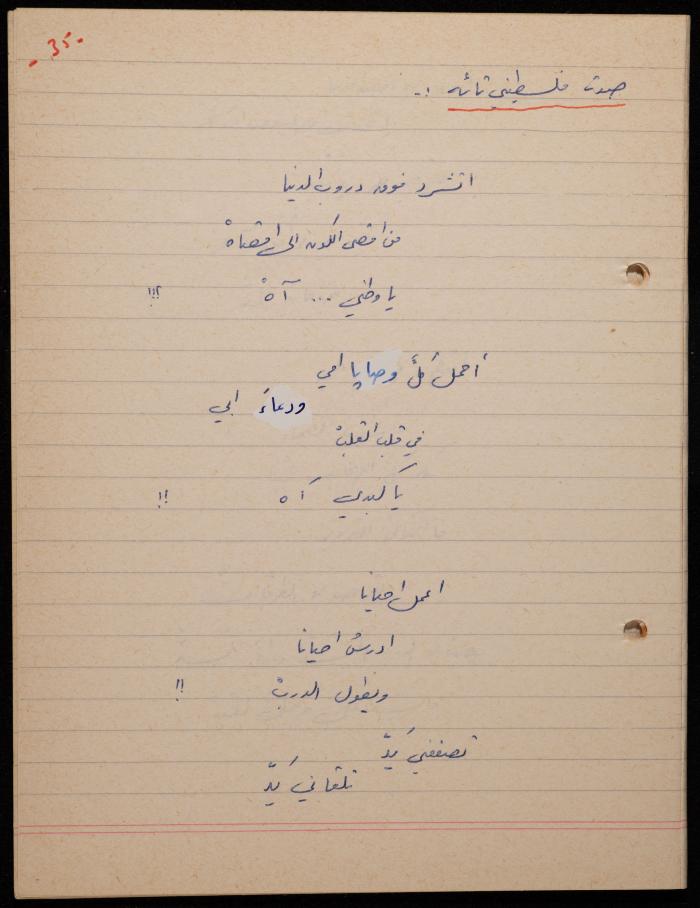 - 35 -
صوت فلسطيني تائه :-
اتشرد فوق دروب الدنيا
من اقصى الكون الى اقصاهْ
يا وطني ... آهْ !!!
أحمل كلَّ وصايا امي
ودعاءَ ابي
في قلب القلبْ
يا كبدي آه !!
اعمل احيانا
ادرسُ احيانا
ويطول الدربْ !!
تصفعني يَدٌ
تلقاني يَدٌ